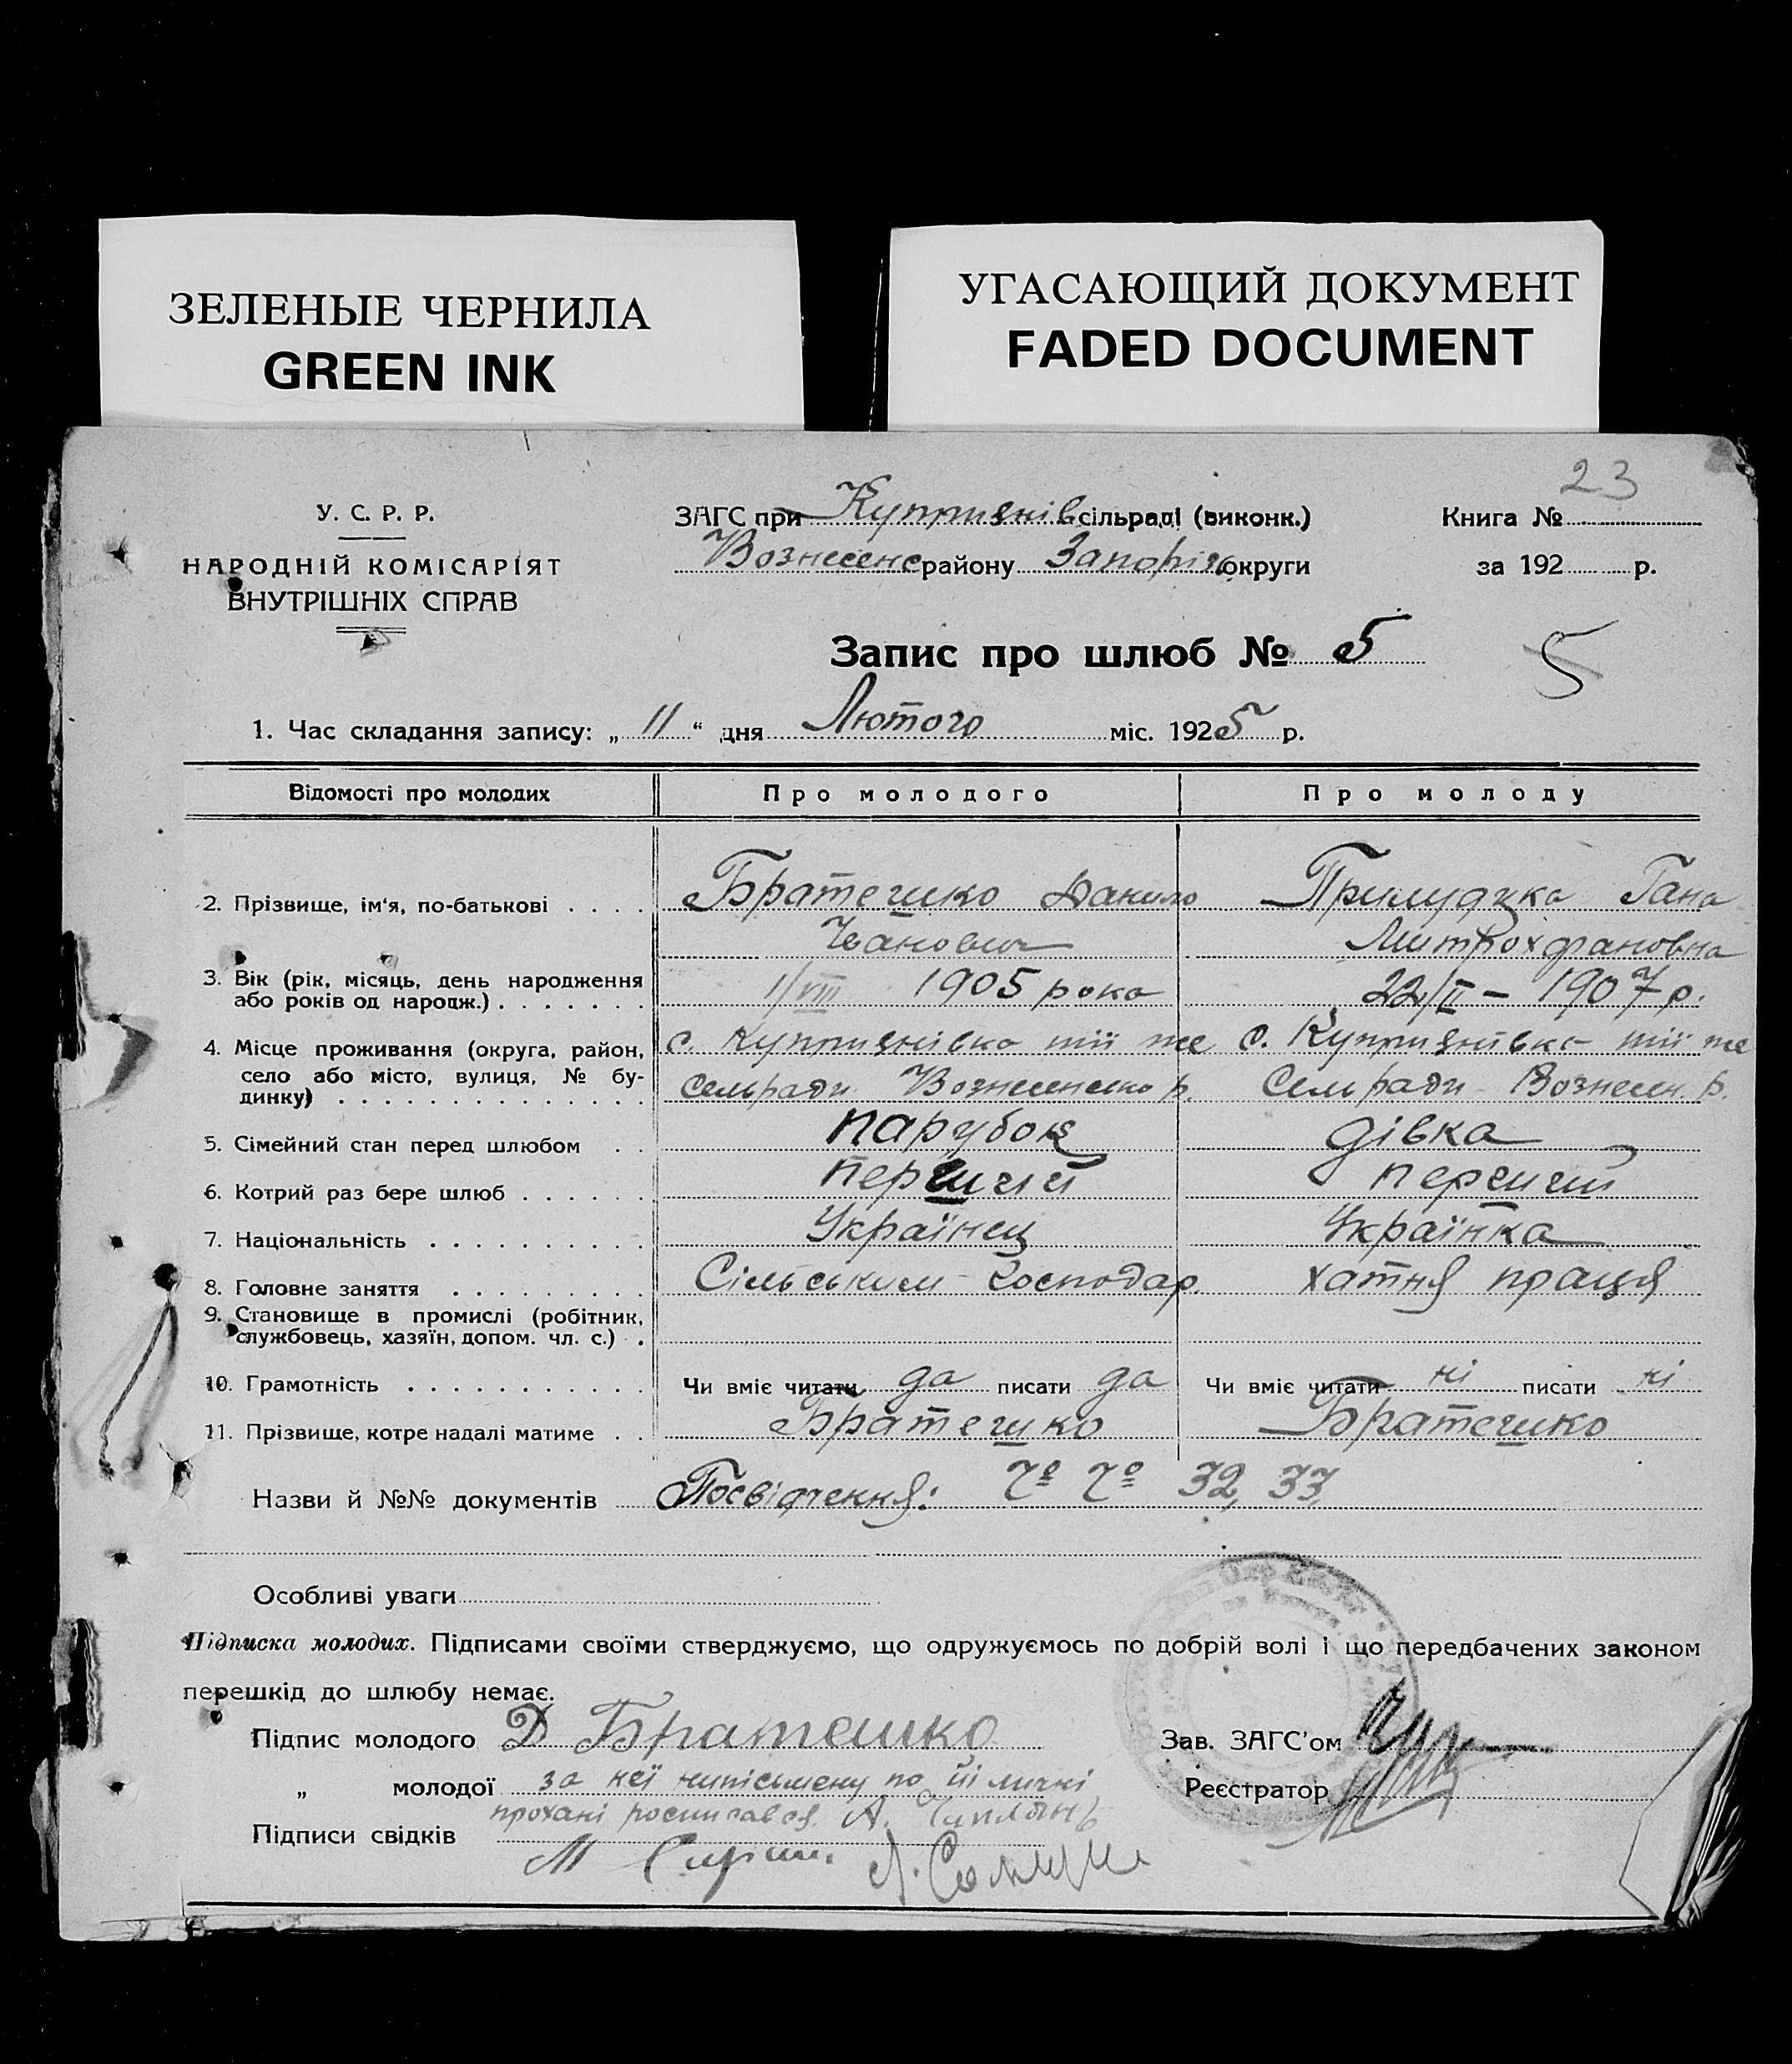 ЗЕЛЕНЫЕ ЧЕРНИЛА
GREEN INK
УГАСАЮЩИЙ ДОКУМЕНТ
FADED DOCUMENT
23
У. С. Р. Р.
НАРОДНІЙ КОМІСАРІЯТ
ВНУТРІШНІХ СПРАВ
ЗАГС при Куприянівсільраді (виконк.)
Вознесенс району Запоріз. округи
Книга №
за 192 р.
Запис про шлюб № 5
5
1. Час складання запису: „ 11 “ дня Лютого міс. 1925 р.
Відомості про молодих Про молодого Про молоду
2. Прізвище, ім'я, по-батькові Братешко Данило Примудзка Гана
Іванович Митрохфановна
3. Вік (рік, місяць, день народження
або років од народж.) 1/VIII 1905 рока 22/II – 1907 р.
4. Місце проживання (округа, район, с. Куприянівка тії же с. Куприянівка тії же
село або місто, вулиця, № бу- Сельради Вознесенско р. Сельради Вознесен. р.
динку)
5. Сімейний стан перед шлюбом парубок дівка
6. Котрий раз бере шлюб перший перший
7. Національність Українец Українка
8. Головне заняття Сільським господар. хатня праця
9. Становище в промислі (робітник,
службовець, хазяїн, допом. чл. с.)
10. Грамотність Чи вміє читати да писати да Чи вміє читати ні писати ні
11. Прізвище, котре надалі матиме Братешко Братешко
Назви й №№ документів Посвідчення: 32, 33
Особливі уваги
Підписка молодих. Підписами своїми стверджуємо, що одружуємось по добрій волі і що передбачених законом
перешкід до шлюбу немає.
Підпис молодого Д Братешко
Зав. ЗАГС'ом
„ молодої за неї нипісьмену по їй личні
Реєстратор
прохані росписався А.
Підписи свідків
М